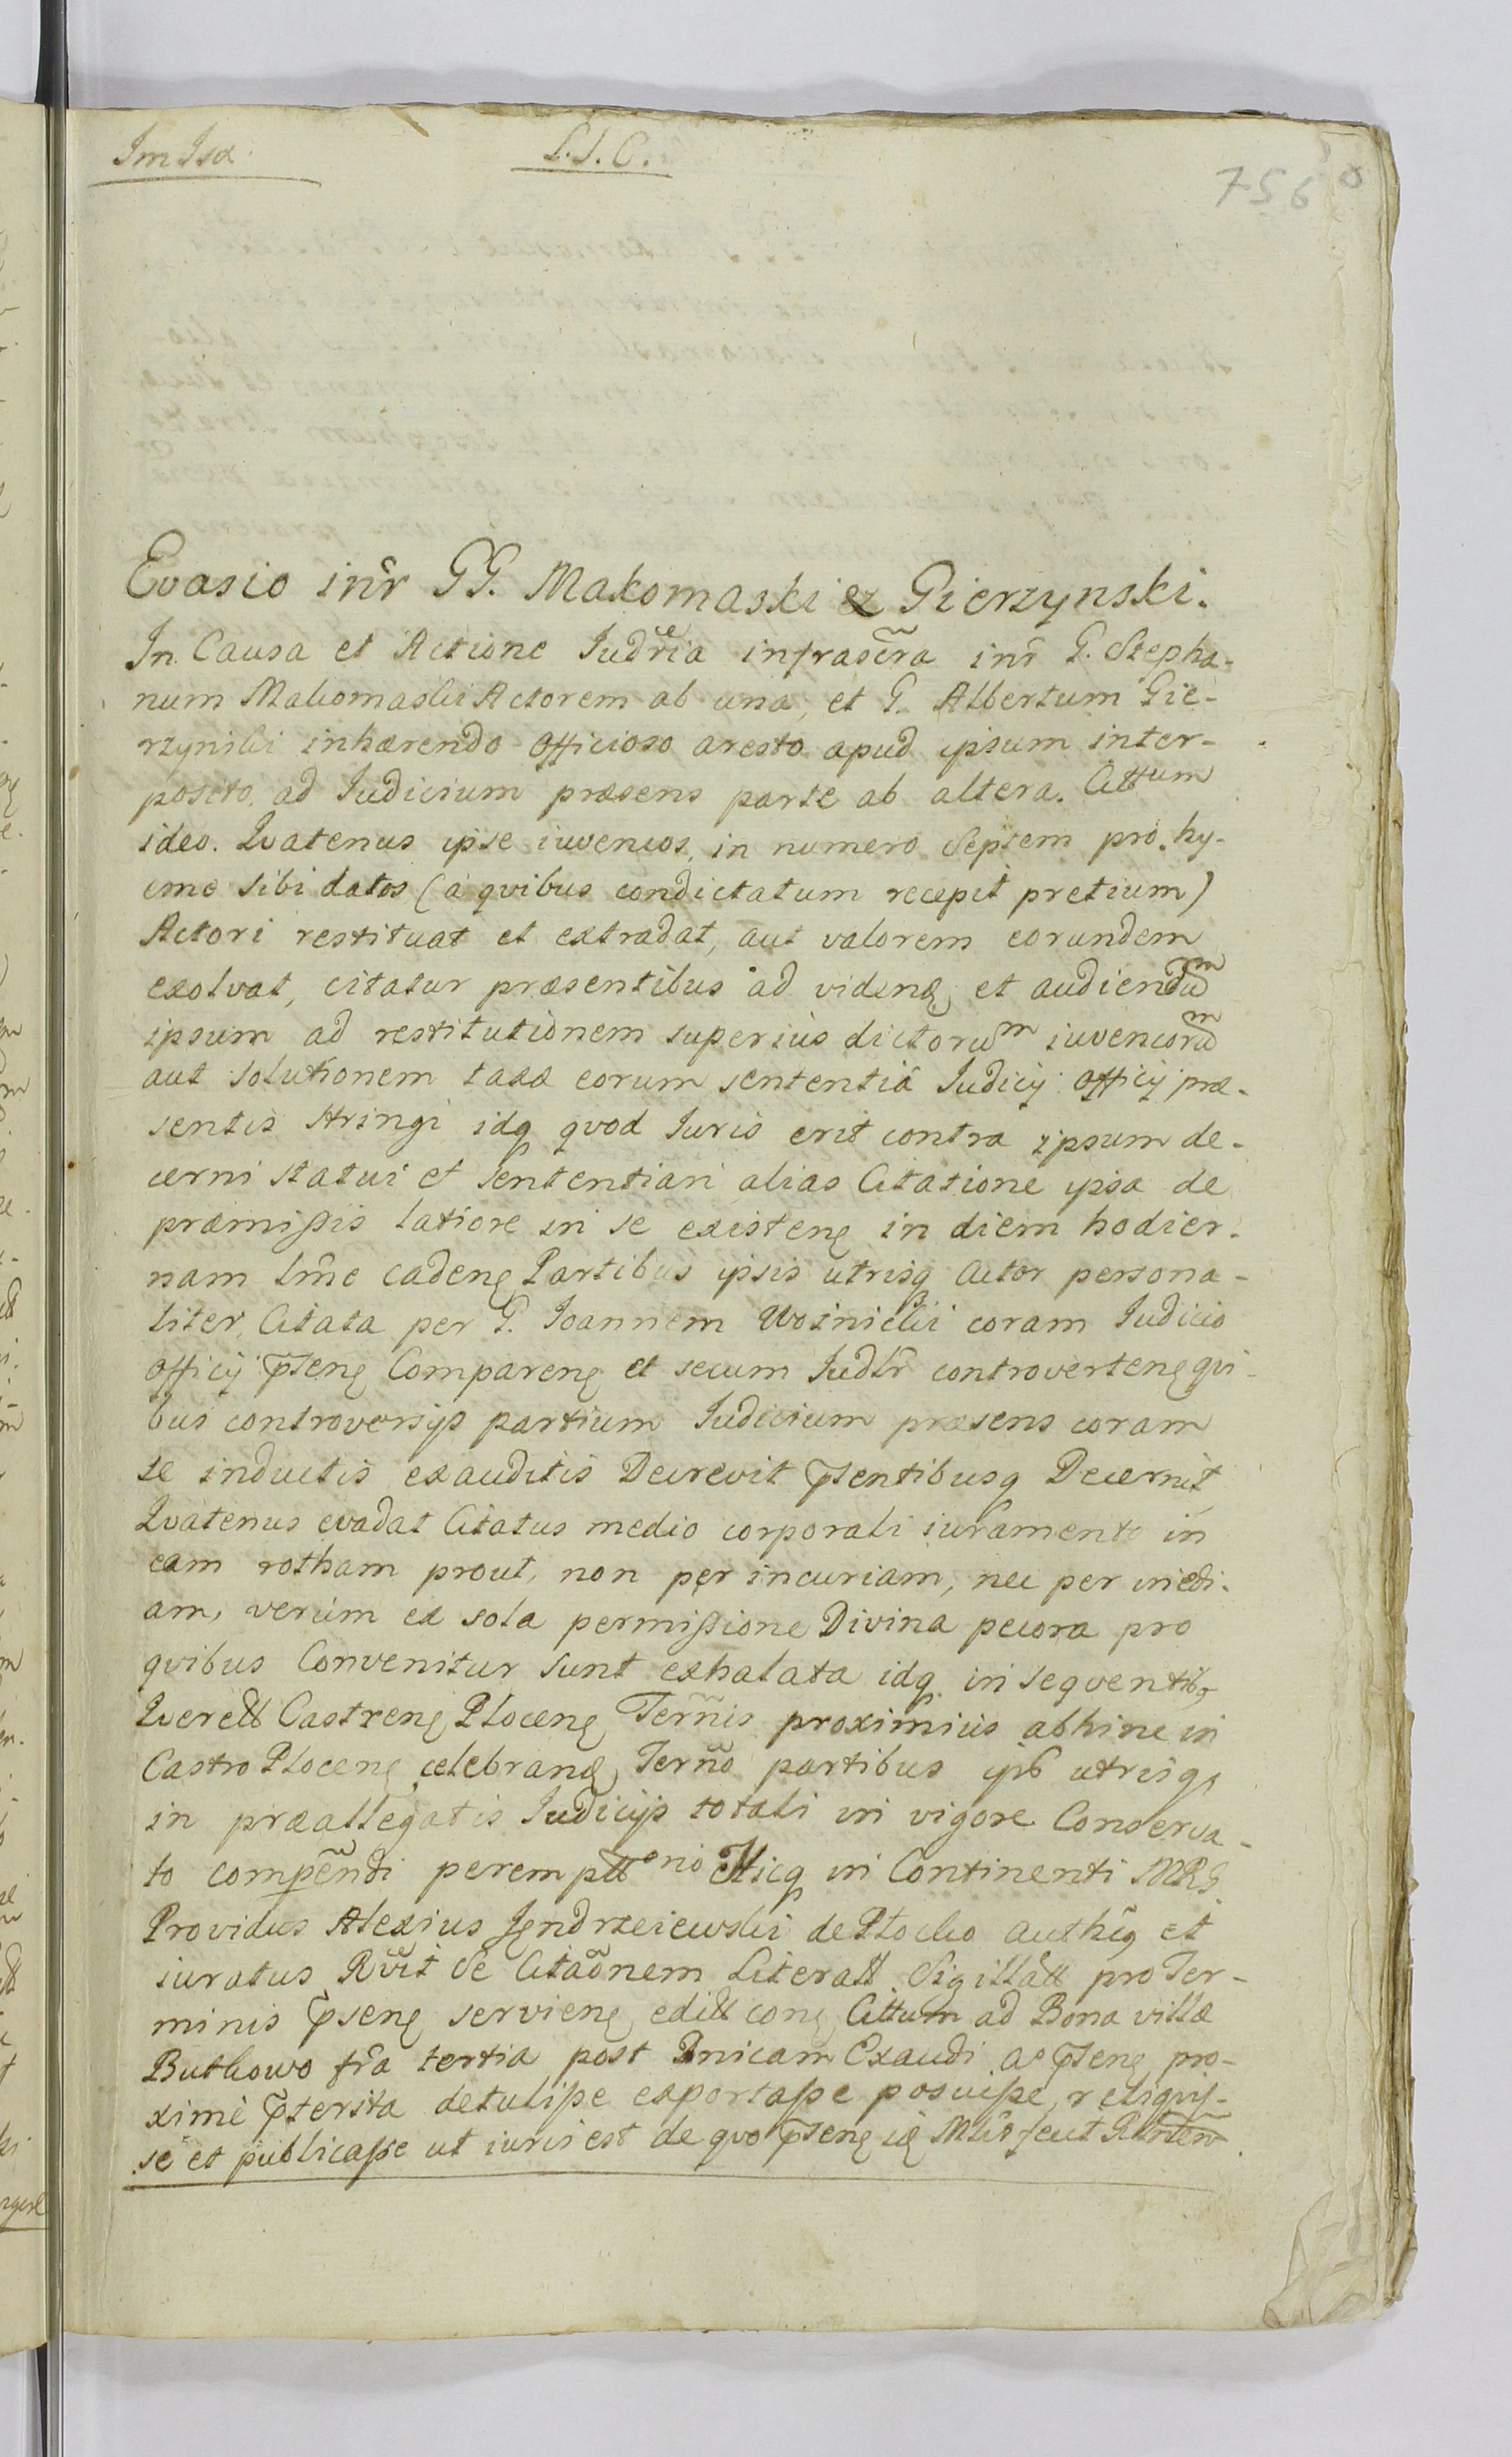 Im Isa
L.I.C.
756
Evasio inr̃ GG. Makomaski et Gierzynski.
In Causa et Actione Iudr̃ia infrascr̃a inr̃ G. Stepha-
num Makomaski Actorem ab una, et G. Albertum Gie-
rzynski inhærendo Officioso aresto apud ipsum inter-
posito, ad Iudicium præsens parte ab altera. Cittum
ideo. Qvatenus ipse iuvencos, in numero Septem pro hy-
eme sibi datos (a qvibus condictatum recepit pretium)
Actori restituat et extradat, aut valorem eorundem
exolvat, citatur præsentibus ad videnꝫ et audiendum
ipsum ad restitutionem superius dictorum iuvencorum
aut solutionem taxæ eorum sententiâ Iudicij Officij præ-
sentis stringi idq quod Iuris erit contra ipsum de-
cerni statui et sententiari alias Citatione ipsa de
præmissis latiore in se existenꝫ in diem hodier-
nam lm̃e cadenꝫ Partibus ipsis utrisq Actor persona-
liter, Citata per G. Ioannem Woznicki coram Iudicio
Officij p̃senꝫ Comparenꝫ et secum Iudlr̃ controvertenꝫ qvi-
bus controversijs partium Iudicium præsens coram
se inductis exauditis Decrevit p̃sentibusq Decernit,
Qvatenus evadat Citatus medio corporali iuramento in
eam rotham prout, non per incuriam, nec per inedi-
am, verùm ex sola permissione Divina pecora pro
qvibus Convenitur sunt exhalata idq in seqventibꝫ
Qverell Castrenꝫ Plocenꝫ Term̃is proximius abhinc in
Castro Plocenꝫ celebranꝫ, Term̃o partibus ipsis utrisqꝫ
in præallegatis Iudicijs totali in vigore Conserva-
to comp̃endi peremptt orio Hicq in Continenti MRG.
Providus Alexius Jendrzeiewski de Plocko authꝫ et
iuratus R̃vit Se Citaõnem Literall Sigillall pro Ter-
minis p̃senꝫ servienꝫ edill conꝫ Cittum ad Bona villæ
Buthowo fr̃a tertia post Dnicam Exaudi Aº p̃senꝫ pro-
ximè p̃terita detulisse exportasse posuisse, reliqvis-
se et publicasse ut iuris est de qvo p̃senꝫ iꝫ Mlis̃ fecit